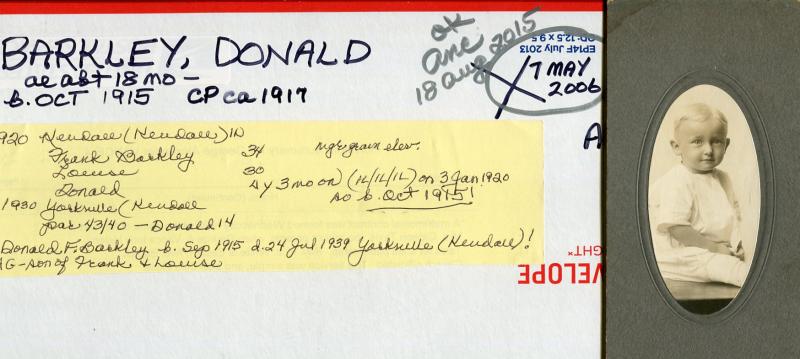 BARKLEY, DONALD
ae abt 18 mo -
b. OCT 1915 CP ca 1917
ok
anc
18 aug 2015
EP14F July 2013
OD: 12.5 x 9.5
7 MAY
2006
A
920 Kendall (Kendall)
Frank Barkley 34 mgr grain elev.
Louise 30
Donald 4y 3mo on (IL/IL/IL) on 3 Jan 1920
so b. Oct 1915!
1930 Yorkville (Kendall
par 43/40 - Donald 14
Donald F. Barkley b. Sep 1915 d. 24 Jul 1939 Yorkville (Kendall)!
AG - son of Frank & Louise
GHT™
VELOPE